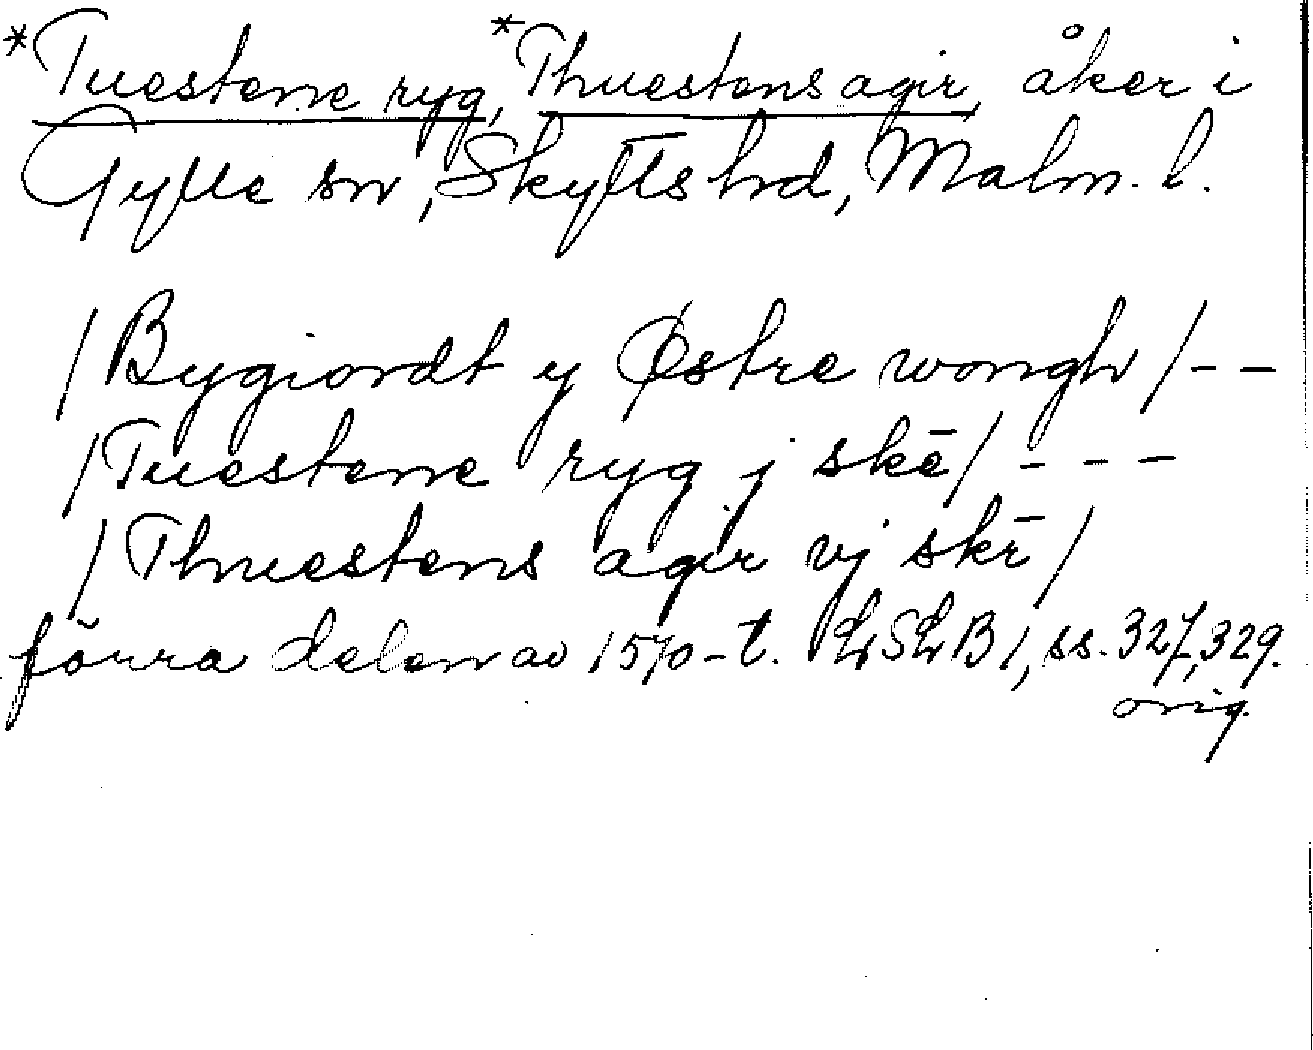 *Tuestene ryg, *Thuestens agir, åker i
Gylle sn, Skytts hd, Malm. l.
/Bygiordt y Østre wongh/ - -
/Tuestene ryg j skē/ - - -
/Thuestens agir vj skē/
förra delen av 1570-t. LSLB 1, ss. 327, 329.
orig.